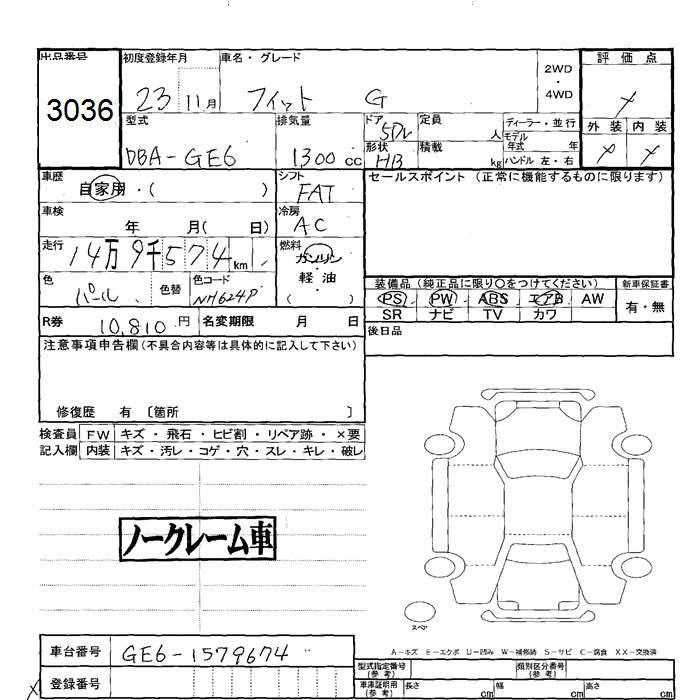 出品番号 初度登録年月 車名・グレード 2WD 評価点
3036 23 11月 フィット G ・ 4WD
型式 排気量 ドア 5Dr 定員 人 ディーラー・並行 外装 内装
DBA-GE6 1300 cc 形状 HB 積載 kg モデル年式 年 ハンドル 左・右
車歴 シフト セールスポイント (正常に機能するものに限ります)
自家用・( ) FAT
車検 年 月( 日) 冷房 AC
走行 14万9千574km 燃料 ガソリン
色 パール 色替 色コード NH624P ・ 軽油 ( )
装備品 (純正品に限り○をつけてください) 新車保証書
PS PW ABS エアB AW 有・無
SR ナビ TV カワ
R券 10,810円 名変期限 月 日 後日品
注意事項申告欄(不具合内容等は具体的に記入して下さい)
修復歴 有 〔箇所 〕
検査員 FW キズ・飛石・ヒビ割・リペア跡・×要
記入欄 内装 キズ・汚レ・コゲ・穴・スレ・キレ・破レ
ノークレーム車
スペア
A−キズ E−エクボ U−凹み W−補修跡 S−サビ C−腐食 XX−交換済
車台番号 GE6-1579674
登録番号
型式指定番号(参考) 類別区分番号(参考)
車庫証明用(参考) 長さ cm 幅 cm 高さ cm